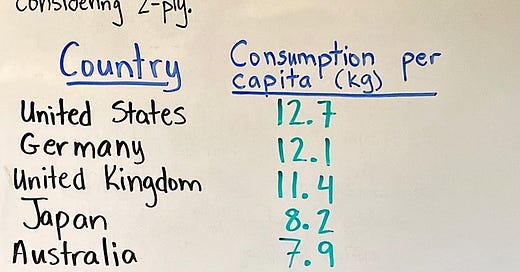 Considering 2-ply.
Country Consumption per capita (kg)
United States 12.7
Germany 12.1
United Kingdom 11.4
Japan 8.2
Australia 7.9